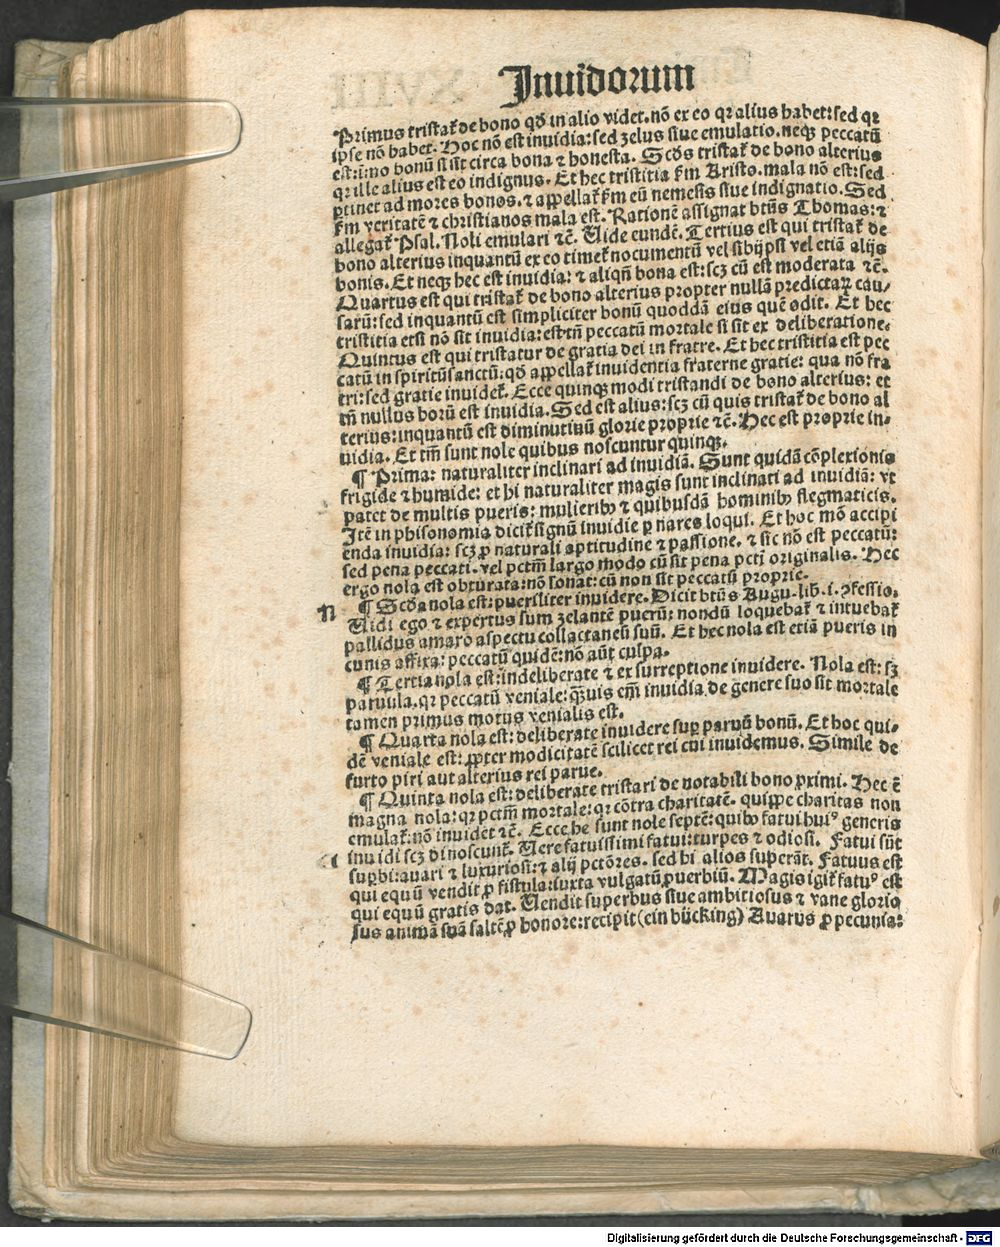 Inuidorum
Primus tristat̃ de bono qđ in alio videt. nõ ex eo qꝛ alius habet: sed qꝛ
ipse nõ habet. Hoc nõ est inuidia: sed zelus siue emulatio. neqꝫ peccatũ
est: imo bonũ si sit circa bona ⁊ honesta. Scđs tristat̃ de bono alterius
qꝛ ille alius est eo indignus. Et hec tristitia ẜm Aristo. mala nõ est: sed
ꝑtinet ad mores bonos. ⁊ appellat̃ ẜm eũ nemesis siue indignatio. Sed
ẜm veritatẽ ⁊ christianos mala est. Rationẽ assignat btũs Thomas: ⁊
allegat̃ Psal. Noli emulari ⁊c̃. Uide eundẽ. Tertius est qui tristat̃ de
bono alterius inquantũ ex eo timet̃ nocumentũ vel sibijpsi vel etiã alijs
bonis. Et neqꝫ hec est inuidia: ⁊ aliqñ bona est: scꝫ cũ est moderata ⁊c̃.
Quartus est qui tristat̃ de bono alterius propter nullã predictaꝝ cau⸗
sarũ: sed inquantũ est simpliciter bonũ quoddã eius quẽ odit. Et hec
tristitia etsi nõ sit inuidia: est tñ peccatũ mortale si sit ex deliberatione.
Quintus est qui tristatur de gratia dei in fratre. Et hec tristitia est pec
catũ in spiritũsanctũ: qđ appellat̃ inuidentia fraterne gratie: qua nõ fra
tri: sed gratie inuidet̃. Ecce quinqꝫ modi tristandi de bono alterius: et
tñ nullus horũ est inuidia. Sed est alius: scꝫ cũ quis tristat̃ de bono al
terius: inquantũ est diminutiuũ glorie proprie ⁊c̃. Hec est proprie in⸗
uidia. Et tm̃ sunt nole quibus noscuntur quinqꝫ.
¶ Prima: naturaliter inclinari ad inuidiã. Sunt quidã cõplexionis
frigide ⁊ humide: et hi naturaliter magis sunt inclinati ad inuidiã: vt
patet de multis pueris: mulieribꝫ ⁊ quibusdã hominibꝫ flegmaticis.
Itẽ in phisonomia dicit̃ signũ inuidie ꝑ nares loqui. Et hoc mõ accipi
enda inuidia: scꝫ ꝓ naturali aptitudine ⁊ passione. ⁊ sic nõ est peccatũ:
sed pena peccati. vel pctm̃ largo modo cũ sit pena pcti originalis. Hec
ergo nola est obturata: nõ sonat: cũ non sit peccatũ proprie.
N ¶ Scđa nola est: pueriliter inuidere. Dicit btũs Augu. lib. i. ↄfessio.
Uidi ego ⁊ expertus sum zelantẽ puerũ: nondũ loquebat̃ ⁊ intuebat̃
pallidus amaro aspectu collactaneũ suũ. Et hec nola est etiã pueris in
cunis affixa: peccatũ quidẽ: nõ aũt culpa.
¶ Tertia nola est: indeliberate ⁊ ex surreptione inuidere. Nola est: sꝫ
paruula. qꝛ peccatũ veniale: q̃uis em̃ inuidia de genere suo sit mortale
tamen primus motus venialis est.
¶ Quarta nola est: deliberate inuidere suꝑ paruũ bonũ. Et hoc qui⸗
dẽ veniale est: ꝓpter modicitatẽ scilicet rei cui inuidemus. Simile de
furto piri aut alterius rei parue.
¶ Quinta nola est: deliberate tristari de notabili bono ꝓximi. Hec ẽ
magna nola: qꝛ pctm̃ mortale: qꝛ cõtra charitatẽ. quippe charitas non
emulat̃: nõ inuidet ⁊c̃. Ecce he sunt nole septẽ: quibꝫ fatui huiꝰ generis
inuidi scꝫ dinoscunt̃. Uere fatuissimi fatui: turpes ⁊ odiosi. Fatui sũt
suꝑbi: auari ⁊ luxuriosi: ⁊ alij pctõres. sed hi alios superãt. Fatuus est
qui equũ vendit ꝓ fistula: iuxta vulgatũ ꝓuerbiũ. Magis igit̃ fatuꝰ est
qui equũ gratis dat. Uendit superbus siue ambitiosus ⁊ vane glorio
sus animã suã saltẽ ꝓ honore: recipit (ein bücking) Auarus ꝓ pecunia:
Digitalisierung gefördert durch die Deutsche Forschungsgemeinschaft - DFG